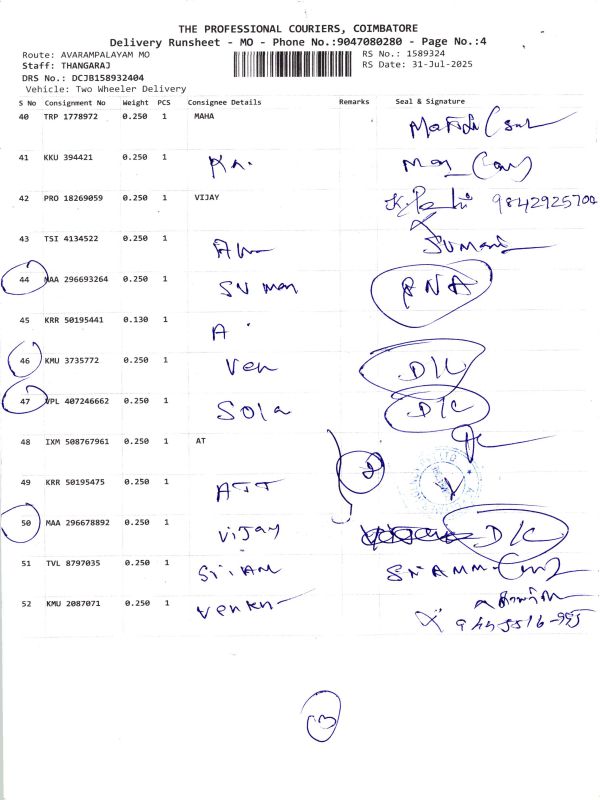 THE PROFESSIONAL COURIERS, COIMBATORE
Delivery Runsheet - MO - Phone No.:9047080280 - Page No.:4
Route: AVARAMPALAYAM MO RS No.: 1589324
Staff: THANGARAJ RS Date: 31-Jul-2025
DRS No.: DCJB158932404
Vehicle: Two Wheeler Delivery
S No Consignment No Weight PCS Consignee Details Remarks Seal & Signature
40 TRP 1778972 0.250 1 MAHA
41 KKU 394421 0.250 1
42 PRO 18269059 0.250 1 VIJAY 9842925700
43 TSI 4134522 0.250 1 Sumani
44 MAA 296693264 0.250 1 SU man RNA
45 KRR 50195441 0.130 1 A.
46 KMU 3735772 0.250 1 Ven D/C
47 VPL 407246662 0.250 1 Sola D/C
48 IXM 508767961 0.250 1 AT
49 KRR 50195475 0.250 1 ATT 2
50 MAA 296678892 0.250 1 Vijay D/C
51 TVL 8797035 0.250 1
52 KMU 2087071 0.250 1
13